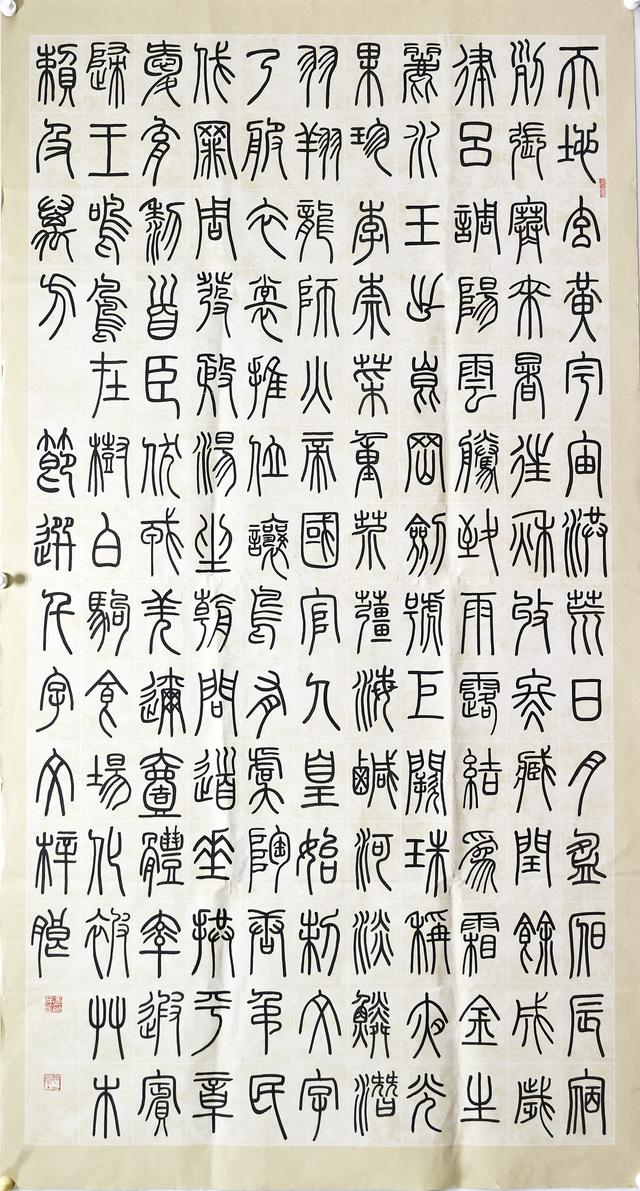 天地玄黃宇宙洪荒日月盈昃辰宿
列張寒來暑往秋收冬藏閏餘成歲
律呂調陽雲騰致雨露結為霜金生
麗水玉出崑岡劍號巨闕珠稱夜光
果珍李柰菜重芥薑海鹹河淡鱗潛
羽翔龍師火帝國官人皇始制文字
乃服衣裳推位讓鳥有虞陶唐弔民
伐罪周發殷湯坐朝問道垂拱平章
愛育黎首臣伏戎羌邇壹體率遐賓
歸王鳴鳳在樹白駒食場化被艸木
賴及萬方 節選千字文梓